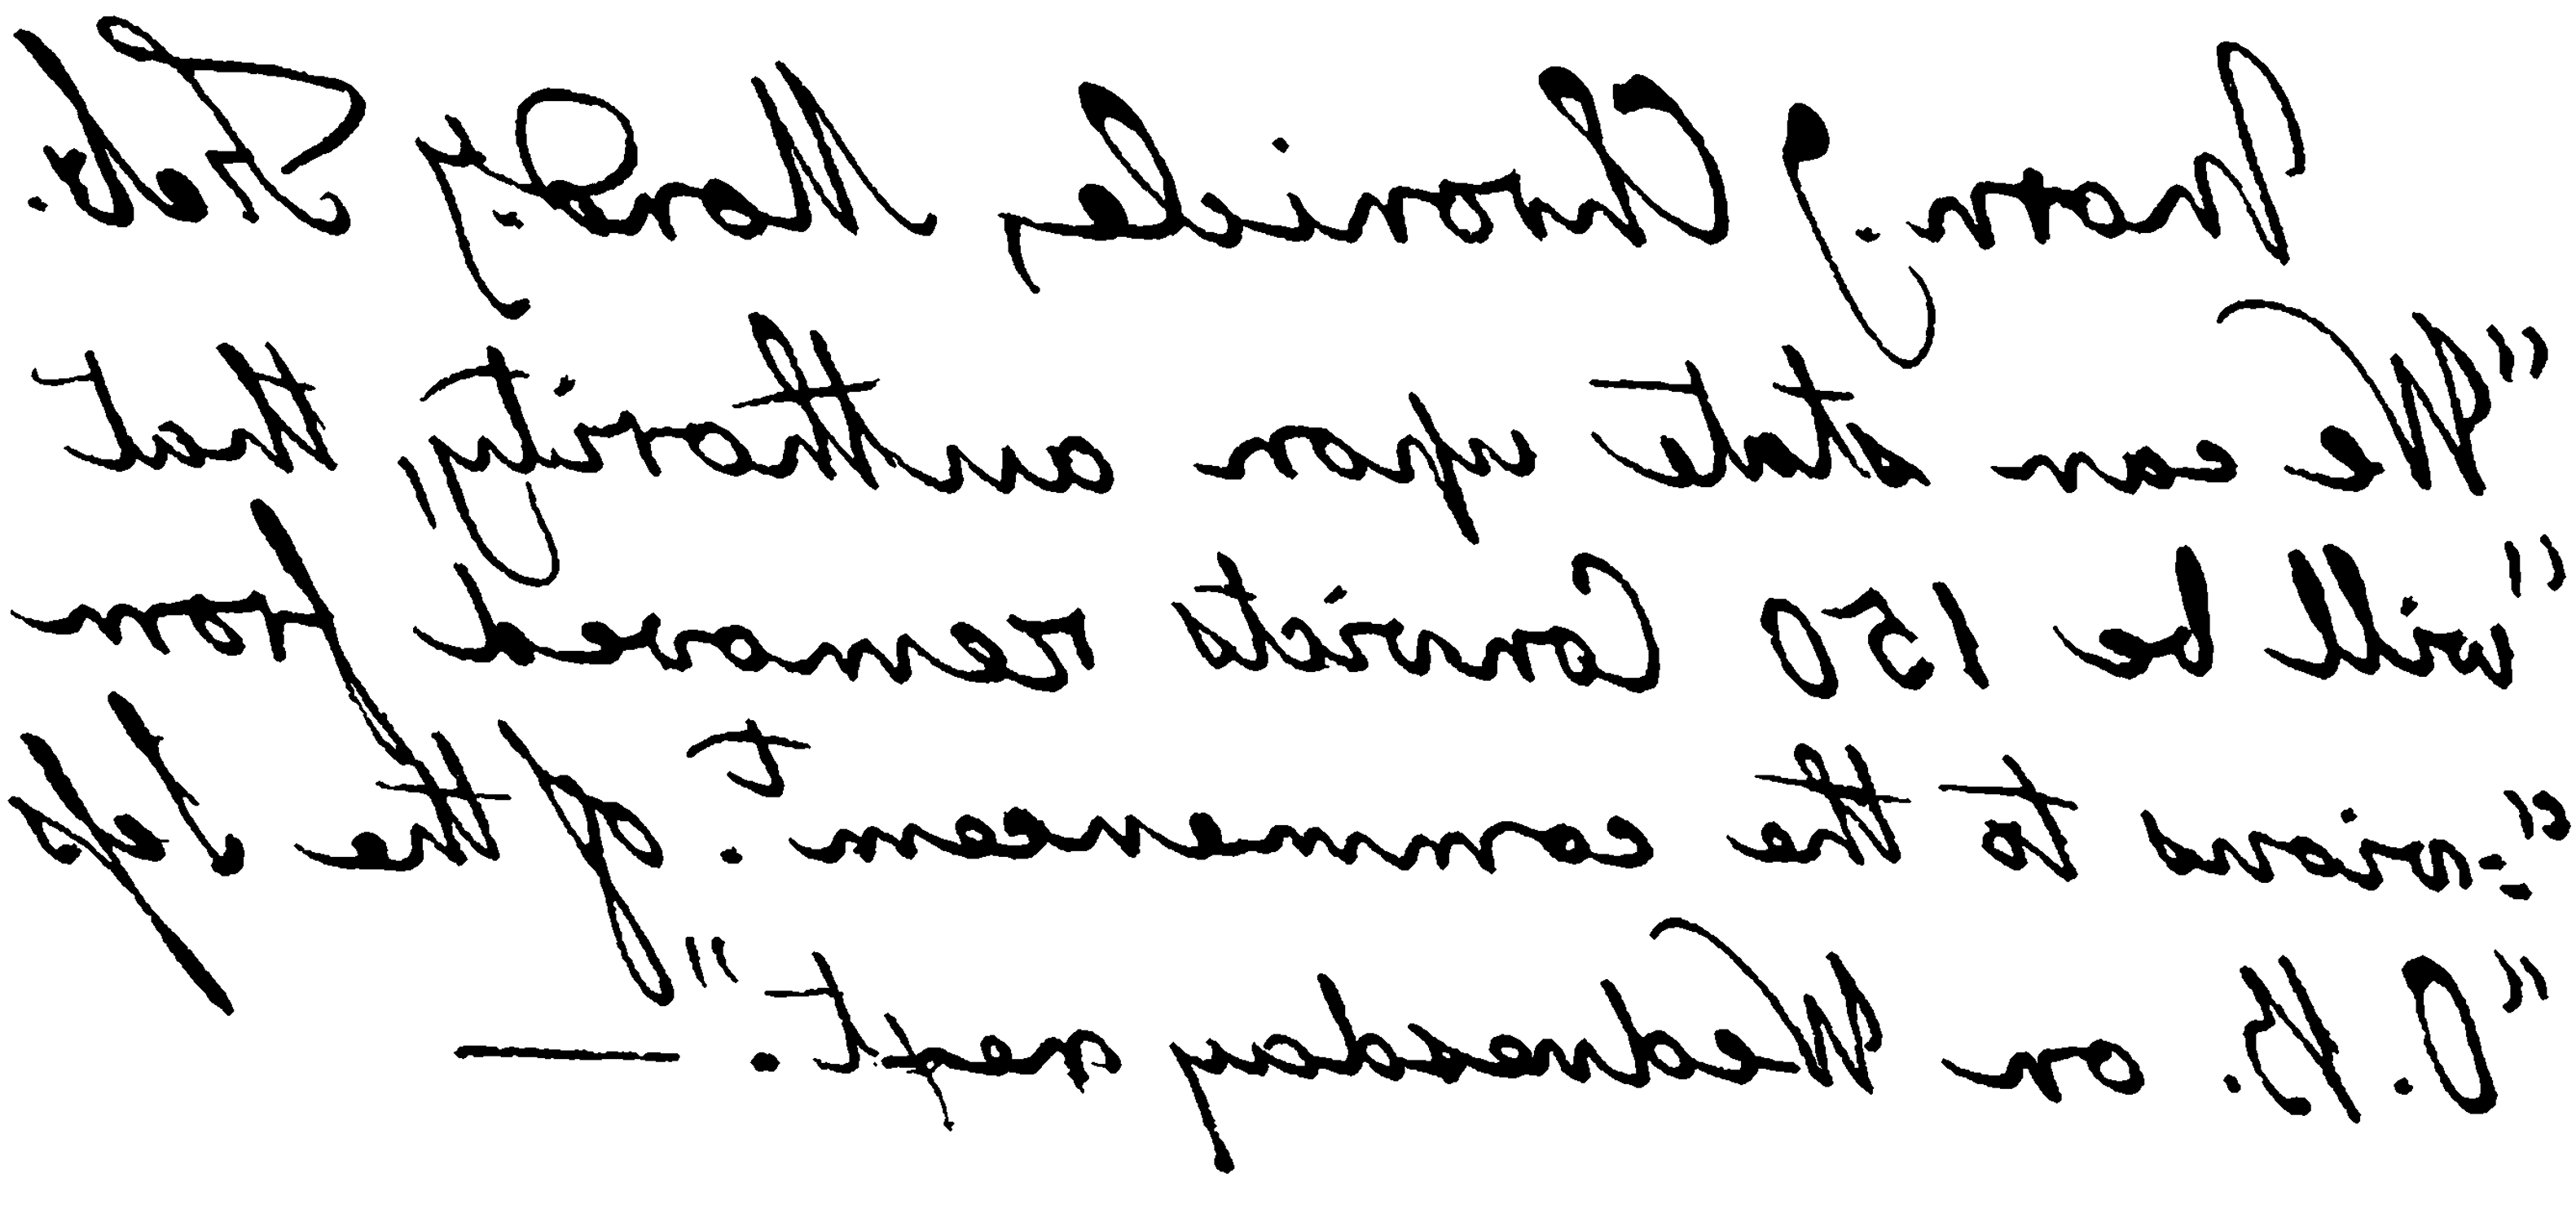 Morn.g Chronicle, Feb.
"We can state upon authority, that
"will be 150 Convicts removed from
"=vious to the commencem.t of the Sess
"O. B. on Wednesday next."—